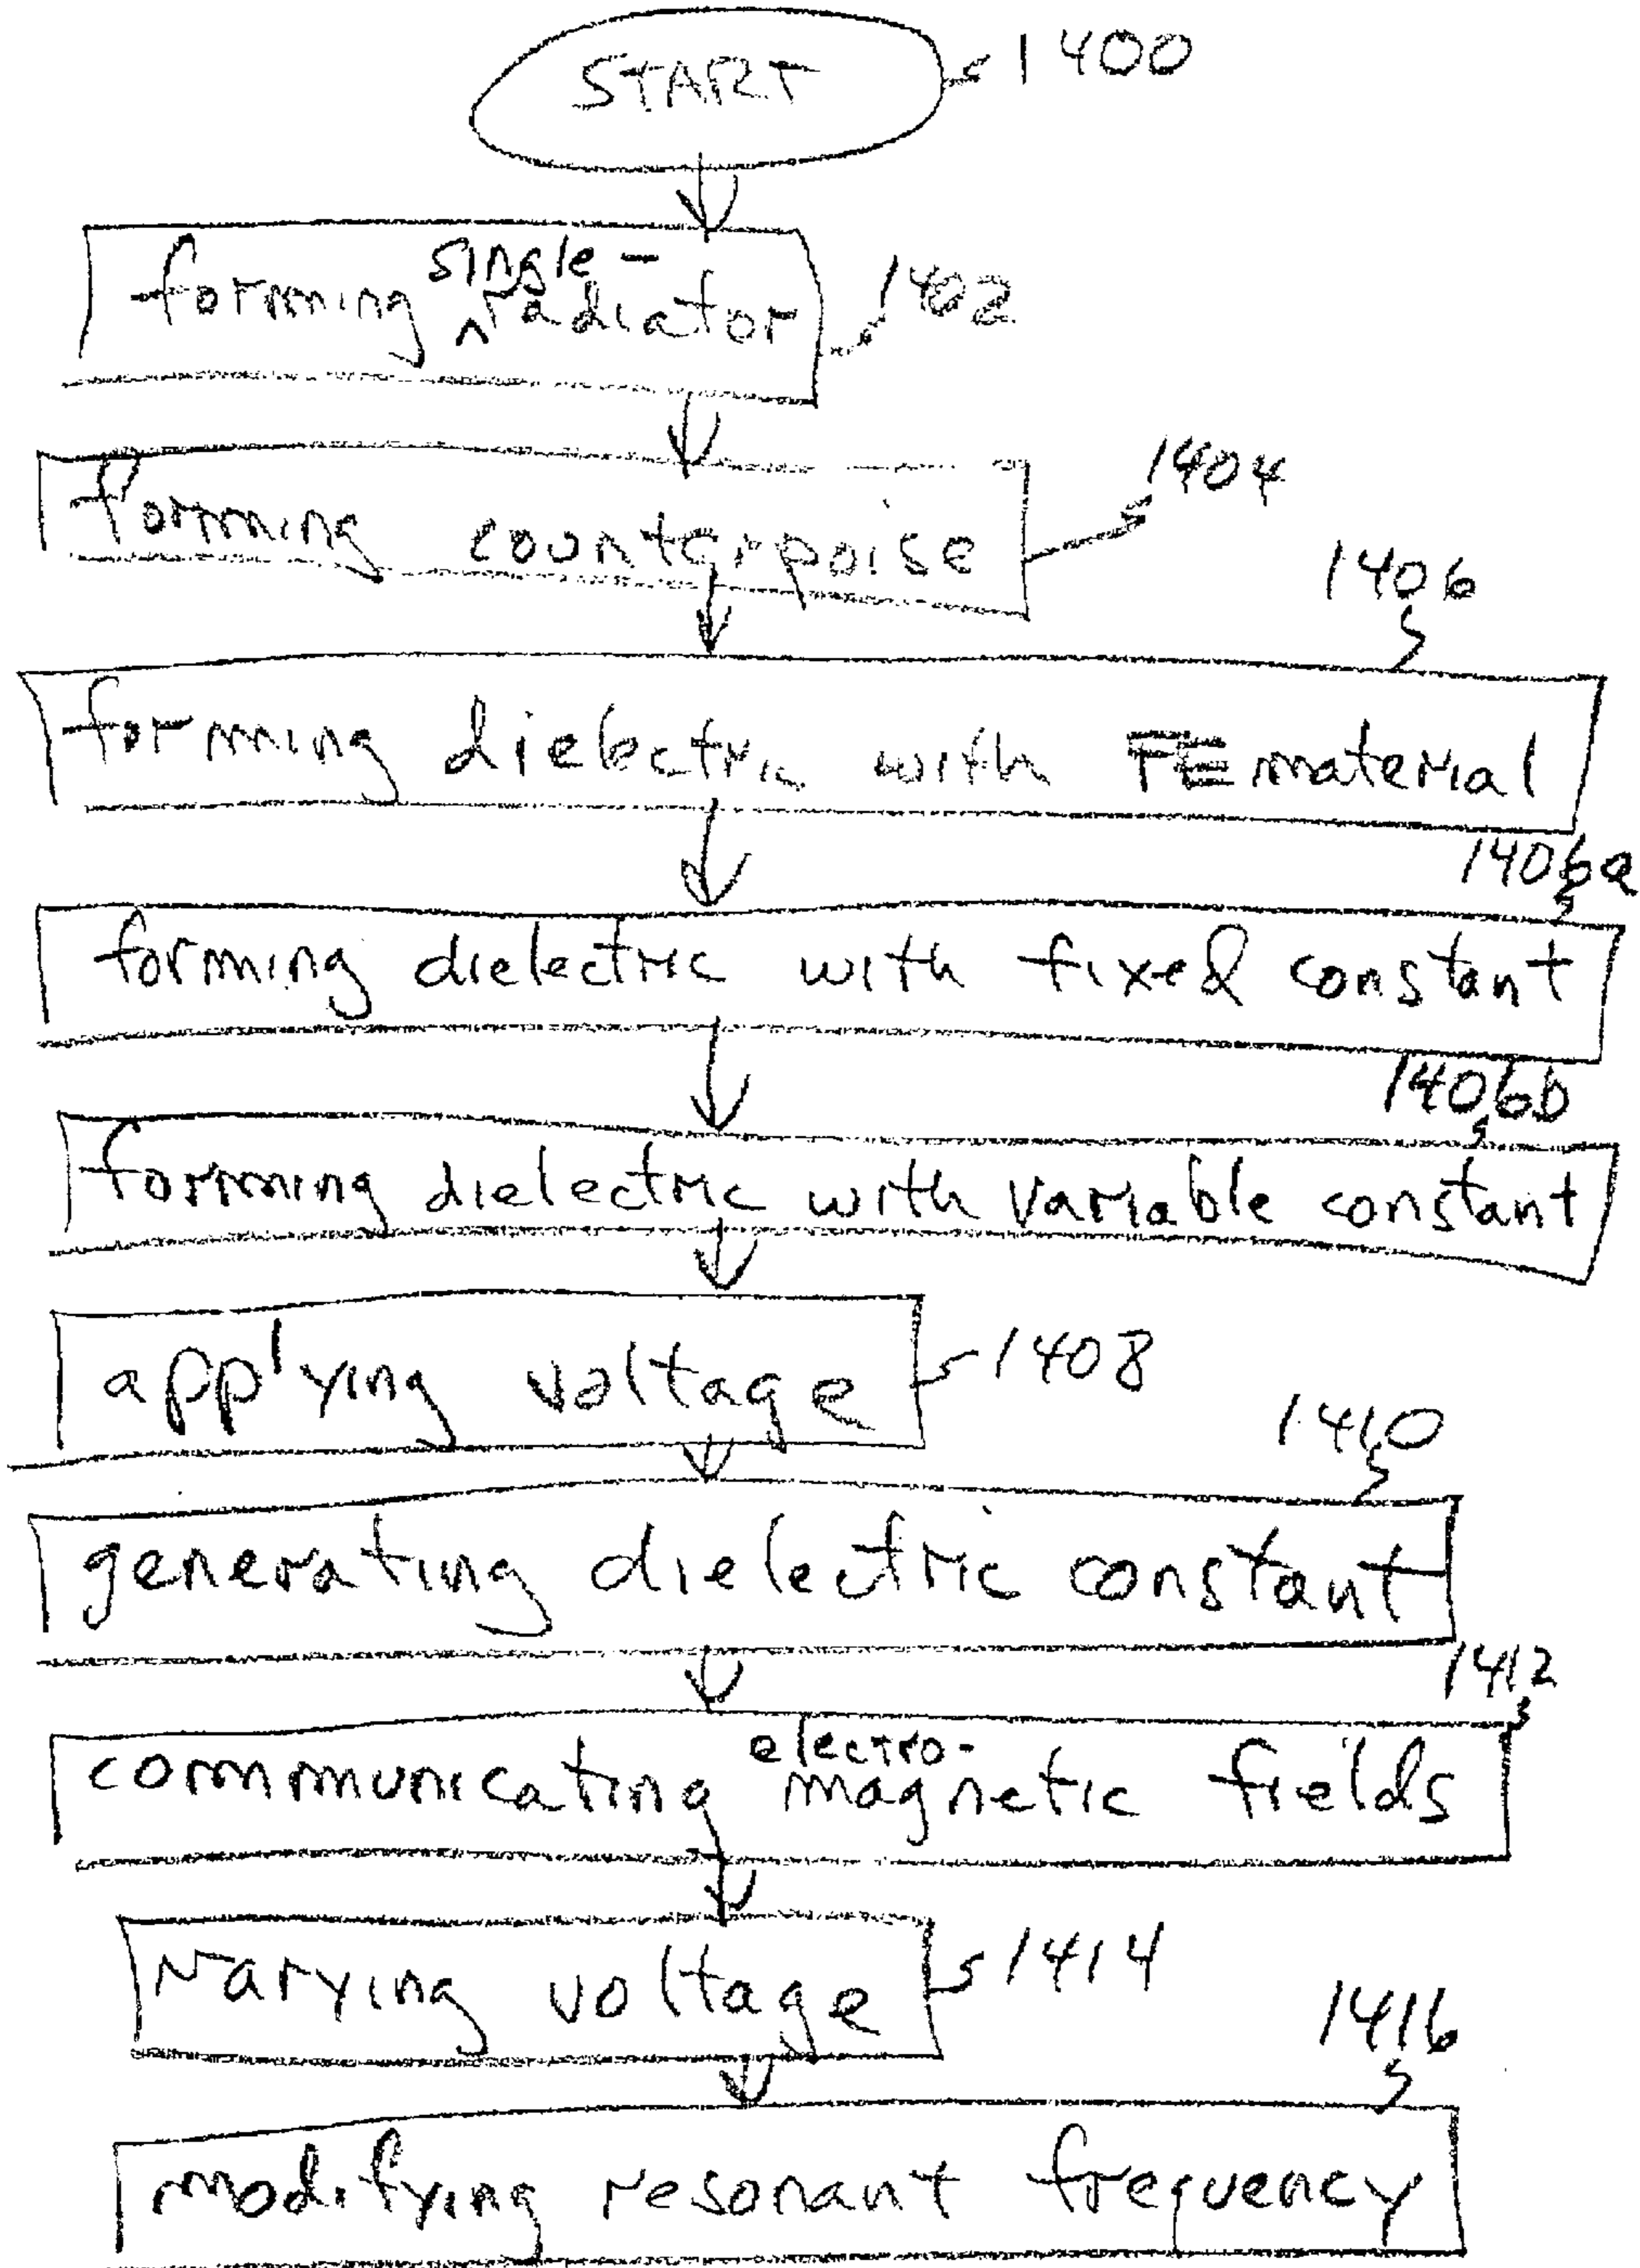 START 1400
forming single-radiator 1402
forming counterpoise 1404
1406
forming dielectric with FE material
1406a
forming dielectric with fixed constant
1406b
forming dielectric with variable constant
applying voltage 1408
1410
generating dielectric constant
1412
communicating electro-magnetic fields
varying voltage 1414
1416
modifying resonant frequency